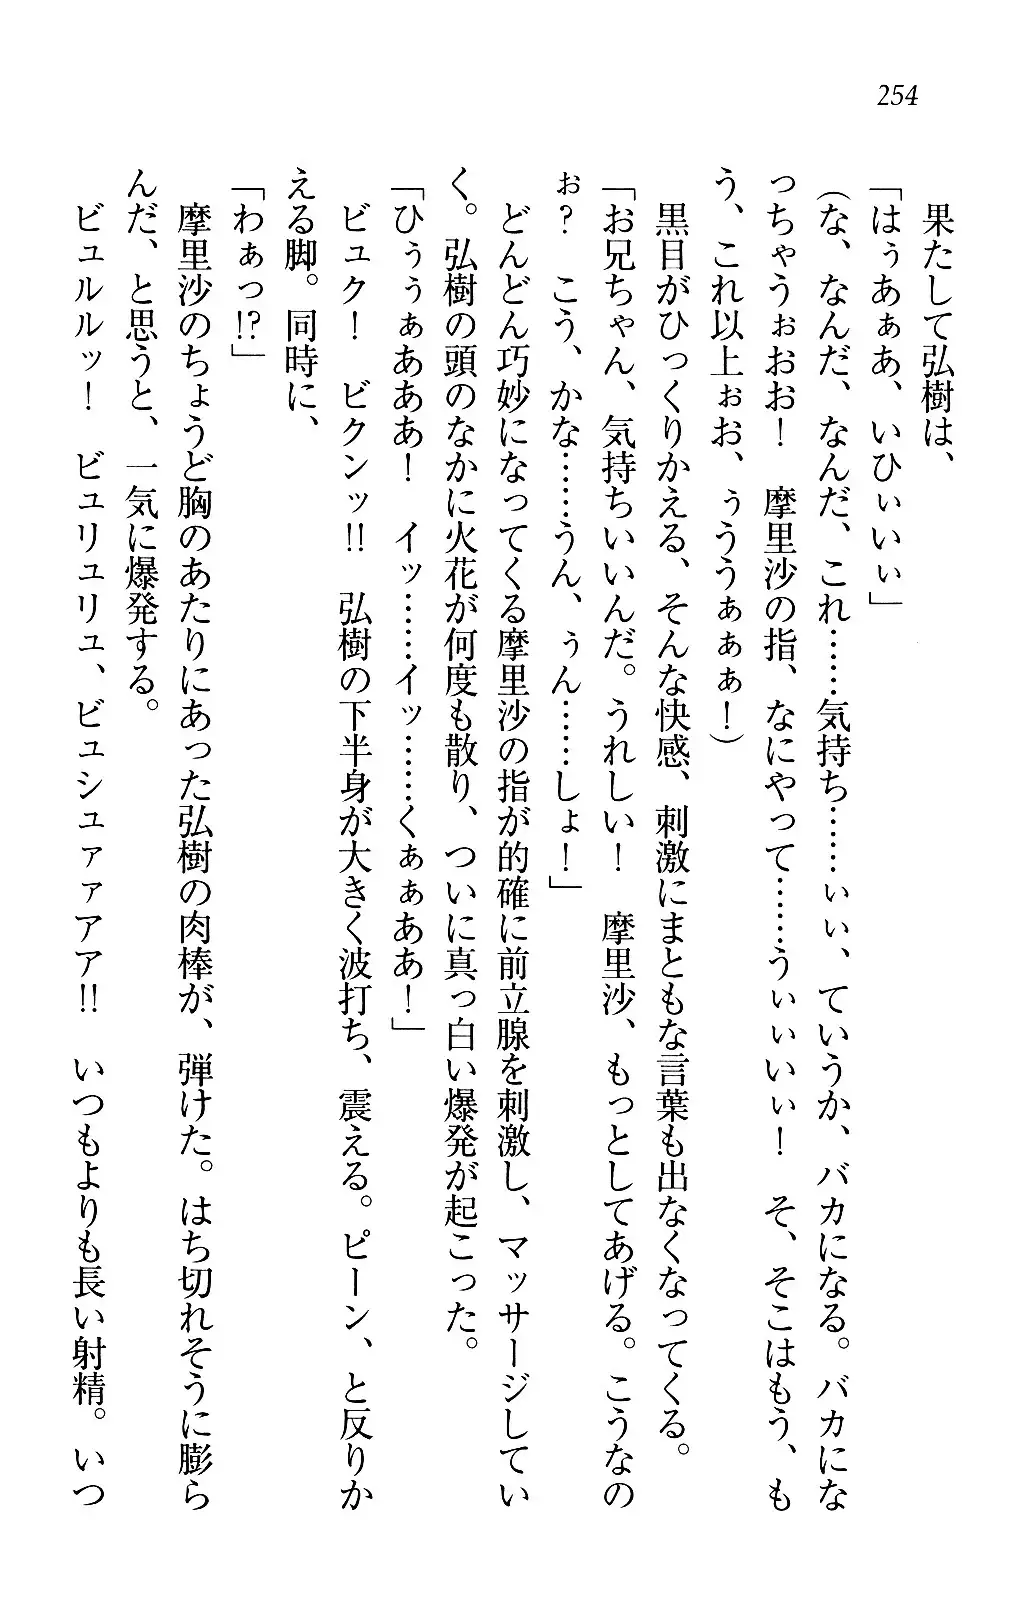 254
果たして弘樹は、
「はぅあぁあ、いひぃいぃ」
（な、なんだ、なんだ、これ……気持ち……ぃぃ、ていうか、バカになる。バカにな
っちゃうぉおお！　摩里沙の指、なにやって……うぃぃいぃ！　そ、そこはもう、も
う、これ以上ぉお、ぅううぁぁぁ！）
黒目がひっくりかえる、そんな快感、刺激にまともな言葉も出なくなってくる。
「お兄ちゃん、気持ちいいんだ。うれしい！　摩里沙、もっとしてあげる。こうなの
ぉ？　こう、かな……うん、ぅん……しょ！」
どんどん巧妙になってくる摩里沙の指が的確に前立腺を刺激し、マッサージしてい
く。弘樹の頭のなかに火花が何度も散り、ついに真っ白い爆発が起こった。
「ひぅぅぁあああ！　イッ……イッ……くぁぁああ！」
ビュク！　ビクンッ!!　弘樹の下半身が大きく波打ち、震える。ピーン、と反りか
える脚。同時に、
「わぁっ!?」
摩里沙のちょうど胸のあたりにあった弘樹の肉棒が、弾けた。はち切れそうに膨ら
んだ、と思うと、一気に爆発する。
ビュルルッ！　ビュリュリュ、ビュシュァァアア!!　いつもよりも長い射精。いつ